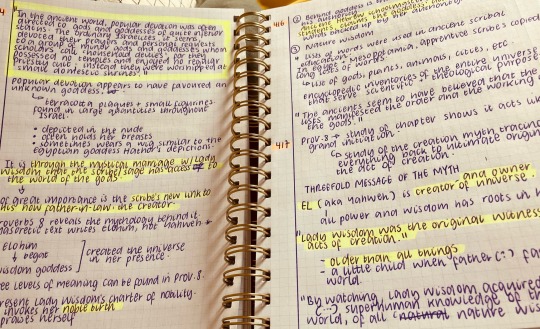 In the ancient world, popular devotion was often
directed to gods and goddesses of quite inferior
status. The ordinary Israelites it seems
devoted their prayers and personal requests
to a group of minor gods and goddesses whom
scholars call household deities. They
possessed no temples and enjoyed no regular
public cult, instead they were worshipped at
small domestic shrines.
Popular devotion appears to have favoured an
unknown goddess.
terracotta plaques + small figurines
found in large quantities throughout
Israel.
• depicted in the nude
• often holds her breasts
• sometimes wears a wig similar to the
Egyptian goddess Hathor's depictions.
It is through the mystical marriage w/ Lady
Wisdom that the scribe/sage has access to
the world of the gods
of great importance is the scribe's new link to
his new father-in-law: the creator.
Proverbs 8 reveals the mythology behind it.
poetic text writes Elohim, not Yahweh
Elohim
↓ begat
wisdom goddess
created the universe
in her presence.
three levels of meaning can be found in Prov. 8.
present Lady Wisdom's charter of nobility.
invokes her noble birth
praises herself
416
② 
③ Nature wisdom
↳ lists of words were used in ancient scribal
education.
in Egypt + Mesopotamia, apprentice scribes copied
long lists of words
↳ list of gods, plants, animals, cities, etc.
encyclopedic inventories of the entire universe
that serve scientific + theological purpose
"The ancients seem to have believed that the
lists manifested the order and the working of
the gods."
417
Prov 8 → study of chapter shows it acts like
grand initial
↳ study of the creation myth tracing
everything back to ultimate origin
the act of creation.
THREEFOLD MESSAGE OF THE MYTH
EL (aka Yahweh) is creator and owner
of universe.
all power and wisdom has roots in h
"Lady Wisdom was the original witness
acts of creation."
- older than all things
- a little child when father (-:) fa
world.
"By watching, Lady Wisdom acquired
(...) superhuman knowledge of th
world, of all natural nature wis